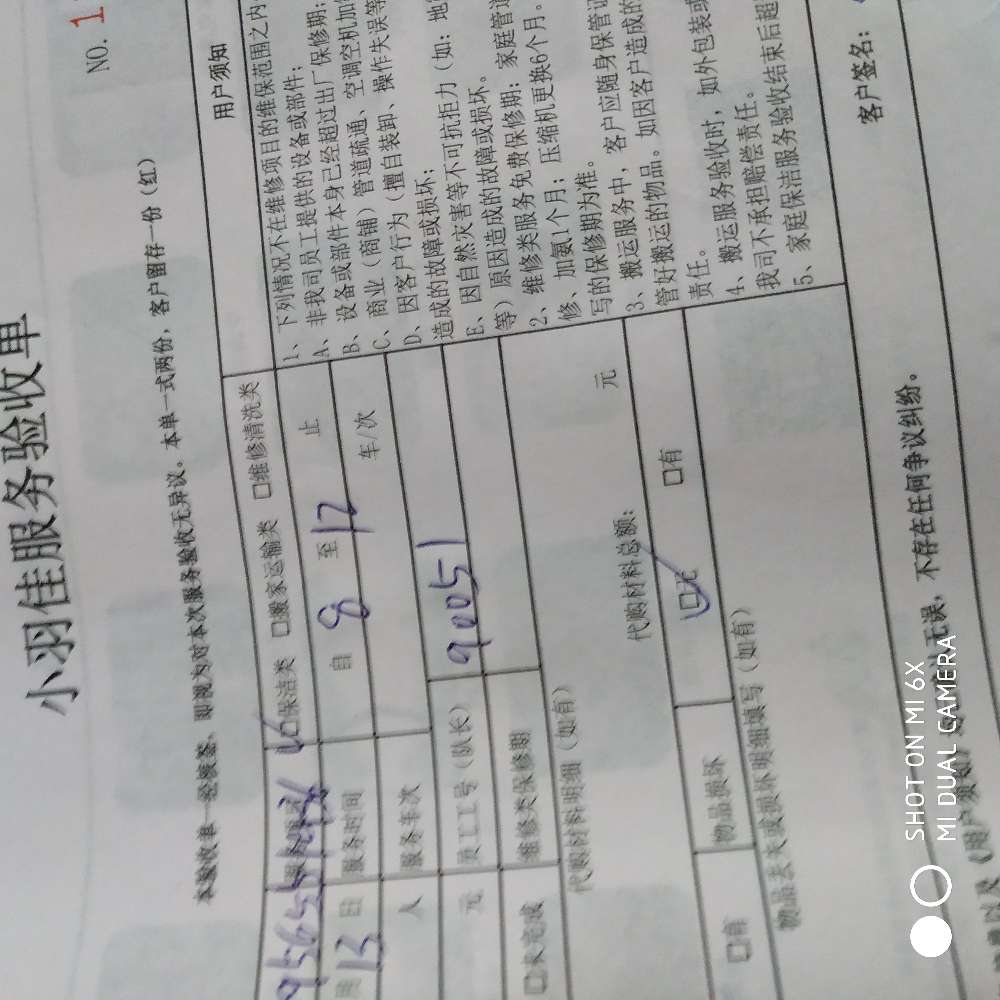 小羽佳服务验收单
NO. 1
本验收单一经核签，即视为对本次服务验收无异议。本单一式两份，客户留存一份（红）
保洁类 □搬家运输类 □维修清洗类
13 日 服务时间 自 8 至 12 止
人 服务车次 车/次
元 员工工号（队长） 90051
□未完成 维修类保修期
代购材料明细（如有） 代购材料总额： 元
□有 物品损坏 □无 □有
物品丢失或损坏明细填写（如有）
用户须知
1、下列情况不在维修项目的维保范围之内
A、非我司员工提供的设备或部件；
B、设备或部件本身已经超过出厂保修期；
C、商业（商铺）管道疏通、空调空机加
D、因客户行为（擅自装卸、操作失误等
造成的故障或损坏；
E、因自然灾害等不可抗拒力（如：地
等）原因造成的故障或损坏。
2、维修类服务免费保修期：家庭管道
修、加氨1个月；压缩机更换6个月。
写的保修期为准。
3、搬运服务中，客户应随身保管证
管好搬运的物品。如因客户造成的
责任。
4、搬运服务验收时，如外包装或
我司不承担赔偿责任。
5、家庭保洁服务验收结束后超
无误，不存在任何争议纠纷。
客户签名：
SHOT ON MI 6X
MI DUAL CAMERA